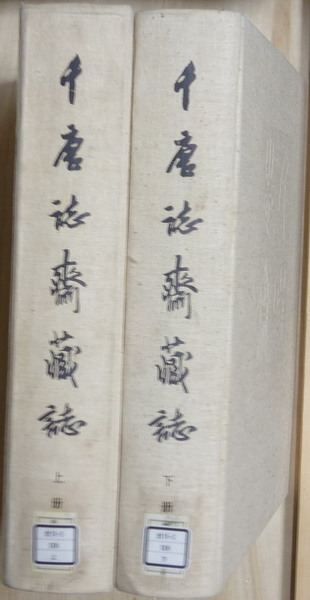 千唐誌齋藏誌
上冊
千唐誌齋藏誌
下冊